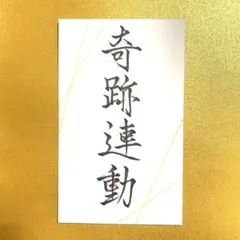 奇跡連動